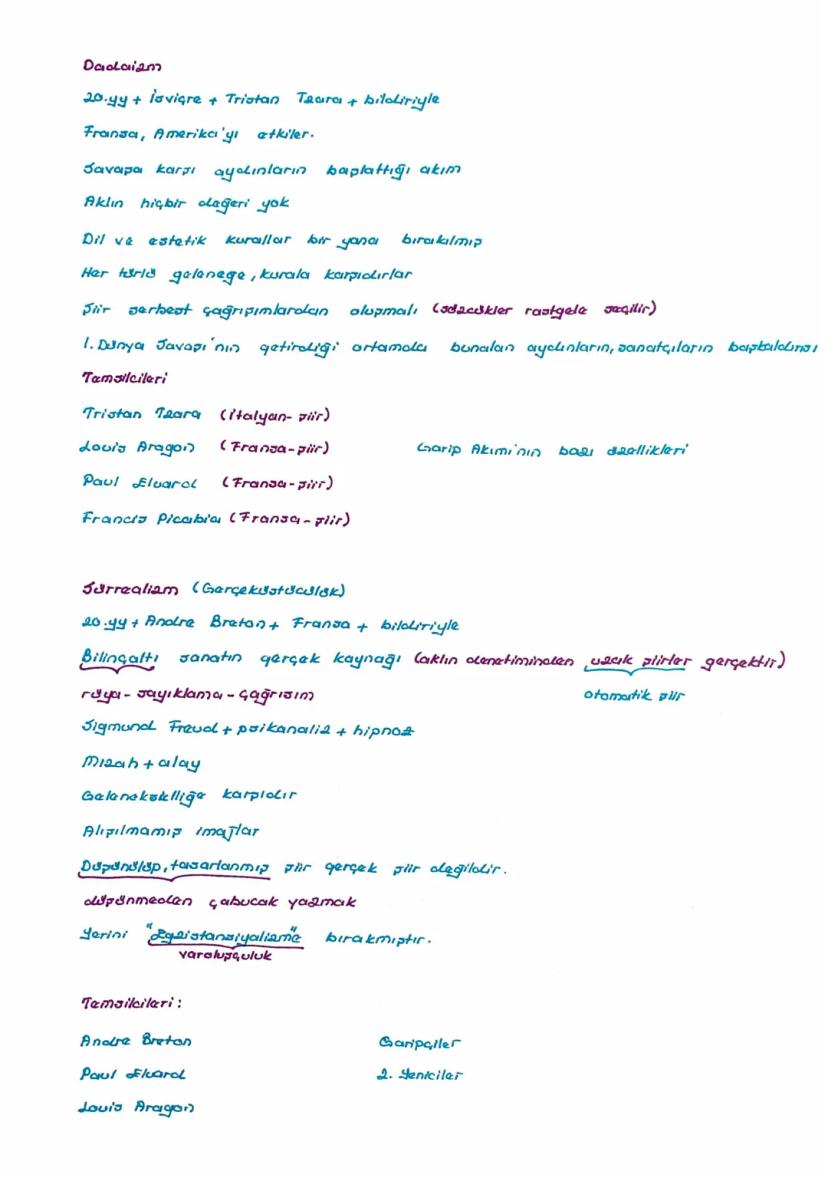 Dadaizm
20.yy + İsviçre + Tristan Tzara + bildiriyle
Fransa, Amerika'yı etkiler.
Savaşa karşı aydınların başlattığı akım
Aklın hiçbir değeri yok
Dil ve estetik kurallar bir yana bırakılmış
Her türlü geleneğe, kurala karşıdırlar
Şiir serbest çağrışımlardan oluşmalı (sözcükler rastgele seçilir)
1. Dünya Savaşı'nın getirdiği ortamda bunalan aydınların, sanatçıların başkaldırısı
Temsilcileri
Tristan Tzara (İtalyan-şiir)
Louis Aragon (Fransa-şiir) Garip Akımı'nın bazı özellikleri
Paul Eluard (Fransa-şiir)
Francis Picabia (Fransa-şiir)
Sürrealizm (Gerçeküstücülük)
20.yy + Andre Breton + Fransa + bildiriyle
Bilinçaltı sanatın gerçek kaynağı (aklın denetiminden uzak şiirler gerçektir)
rüya - sayıklama - çağrışım otomatik şiir
Sigmund Freud + psikanaliz + hipnoz
Mizah + alay
Gelenekselliğe karşıdır
Alışılmamış imajlar
Düşünülüp, tasarlanmış şiir gerçek şiir değildir.
düşünmeden çabucak yazmak
Yerini "Egzistansiyalizme" bırakmıştır.
varoluşçuluk
Temsilcileri:
Andre Breton Garipçiler
Paul Eluard 2. Yeniciler
Louis Aragon